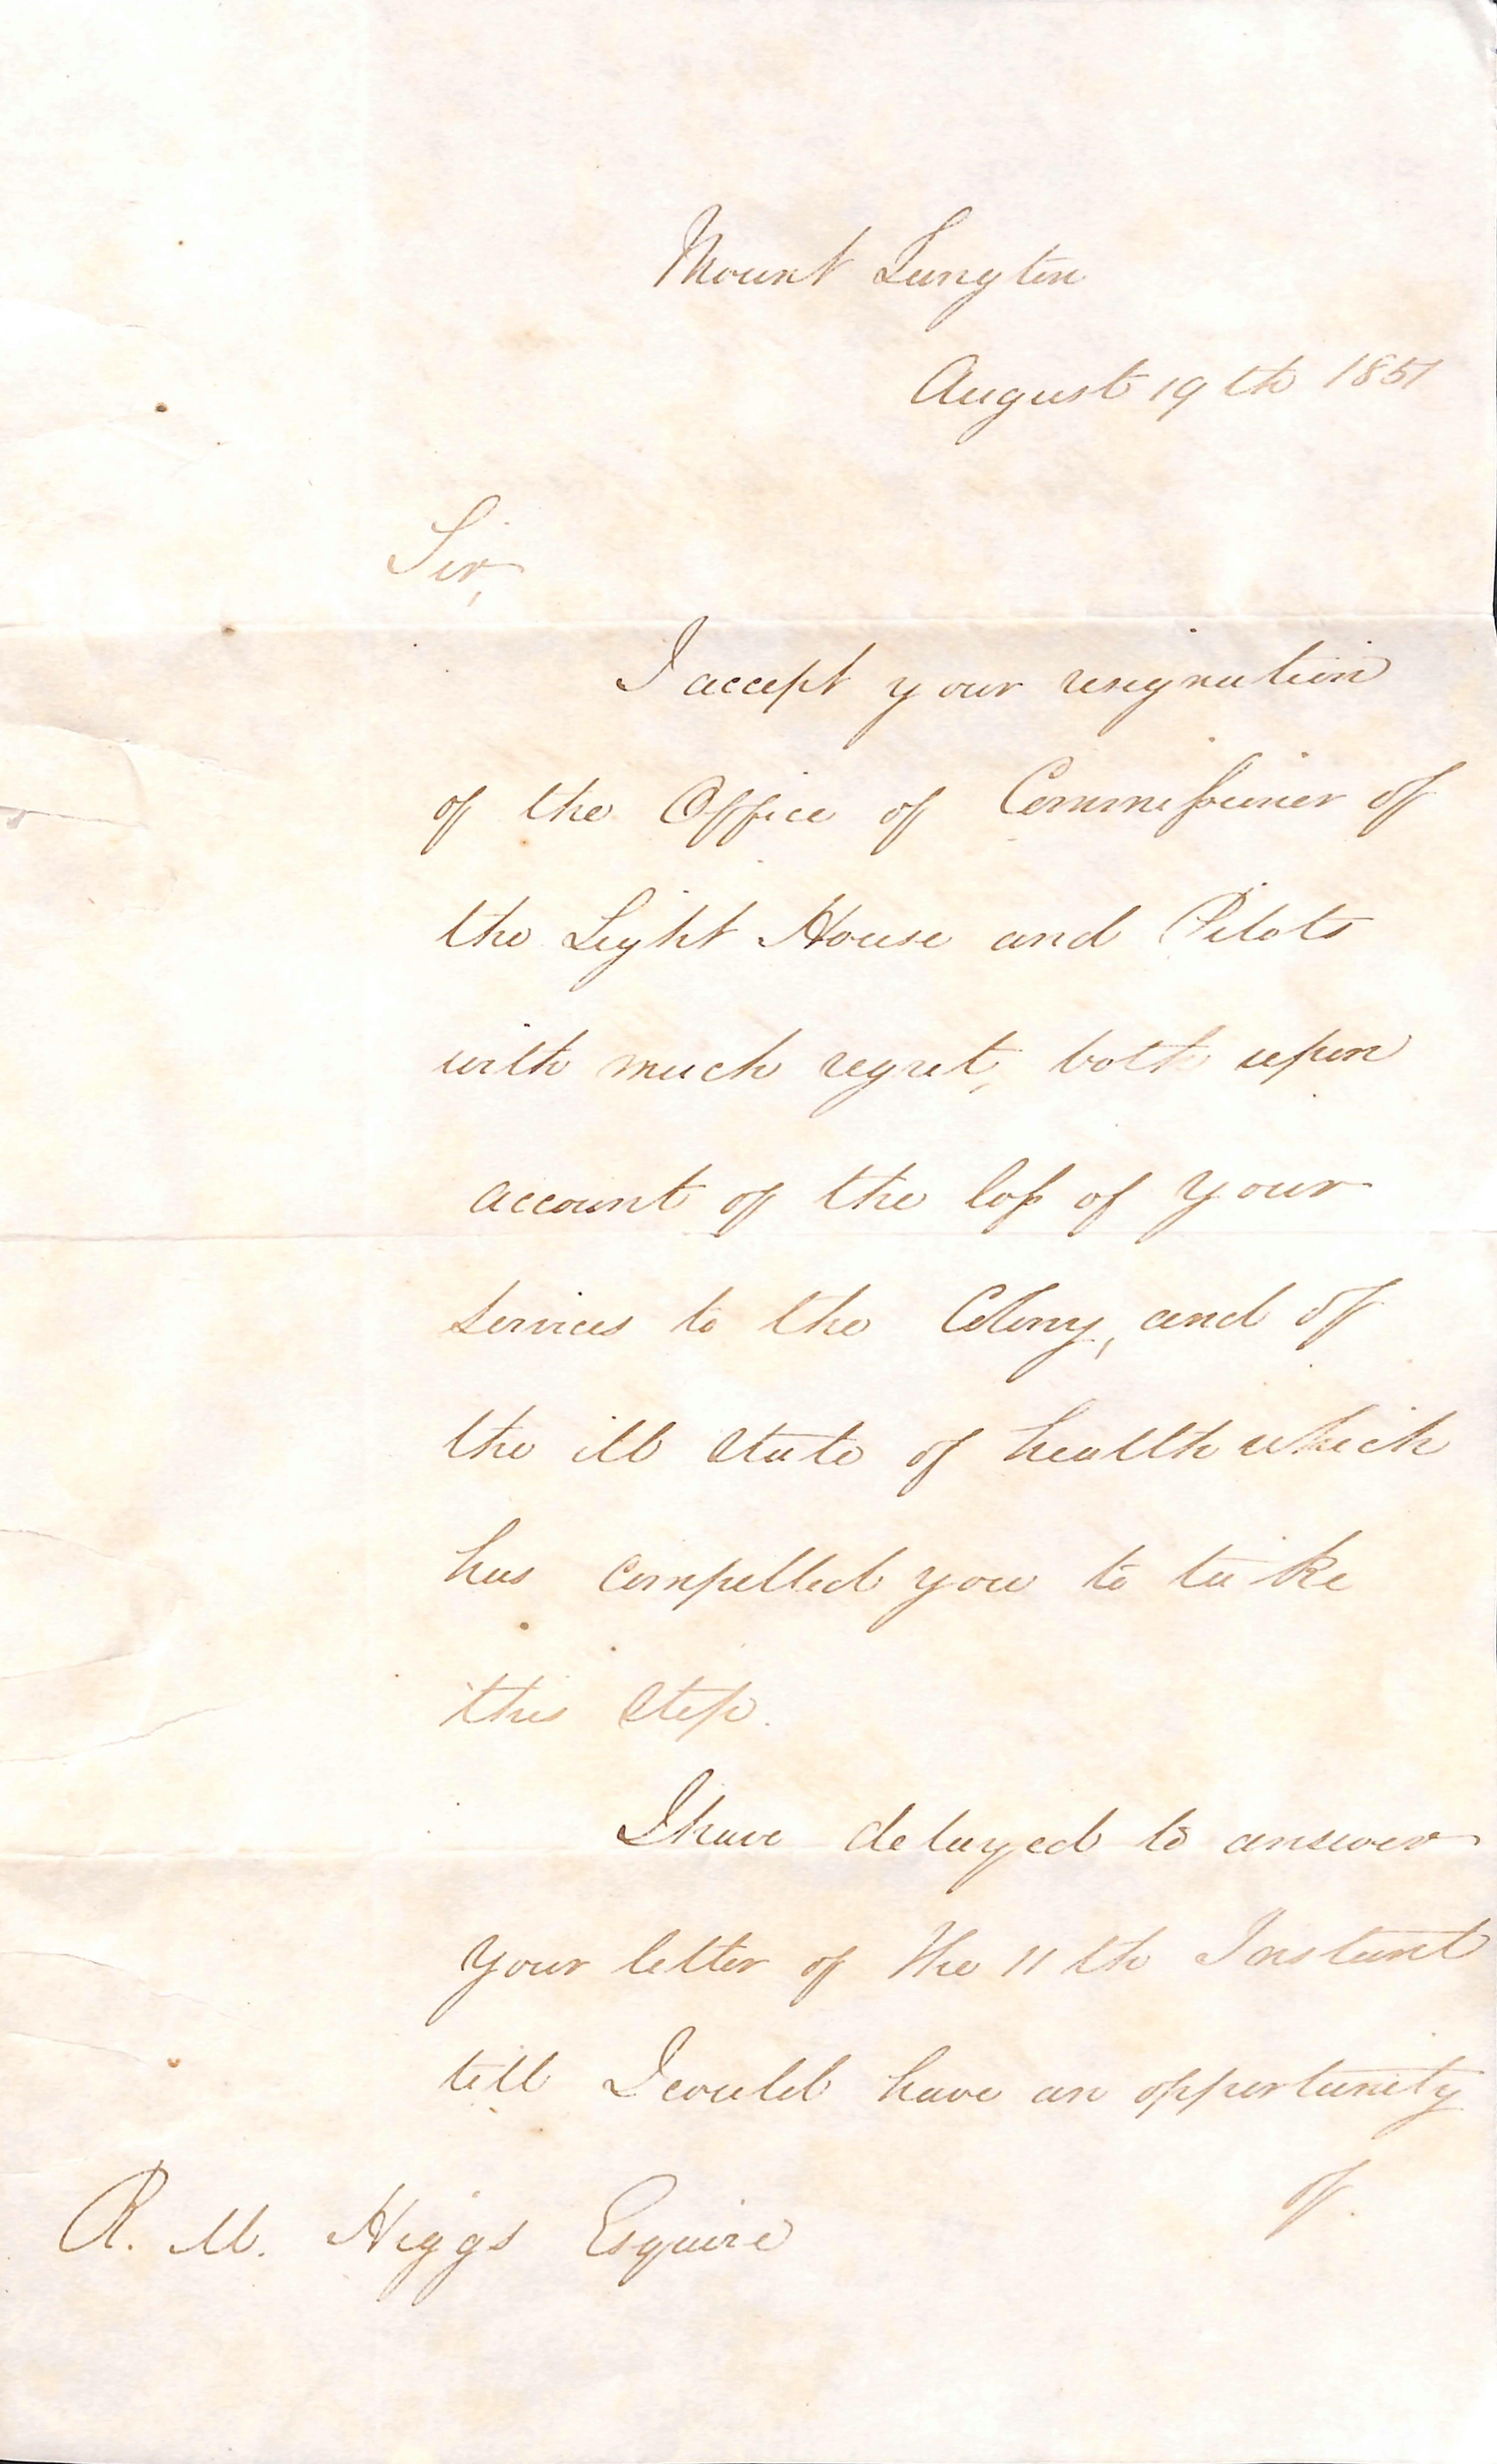 Mount Langton
August 19th 1851
Sir,
I accept your resignation
of the Office of Commissioner of
the Light House and Pilots
with much regret, both upon
account of the loss of your
services to the Colony, and of
the ill state of health which
has compelled you to take
this step.
I have delayed to answer
your letter of the 11th Instant
till I could have an opportunity
of
R. M. Higgs Esquire